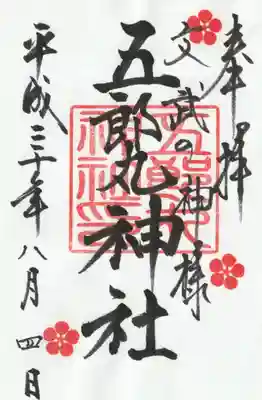 奉拝
文武の神様
五郎丸神社
平成三十年八月四日